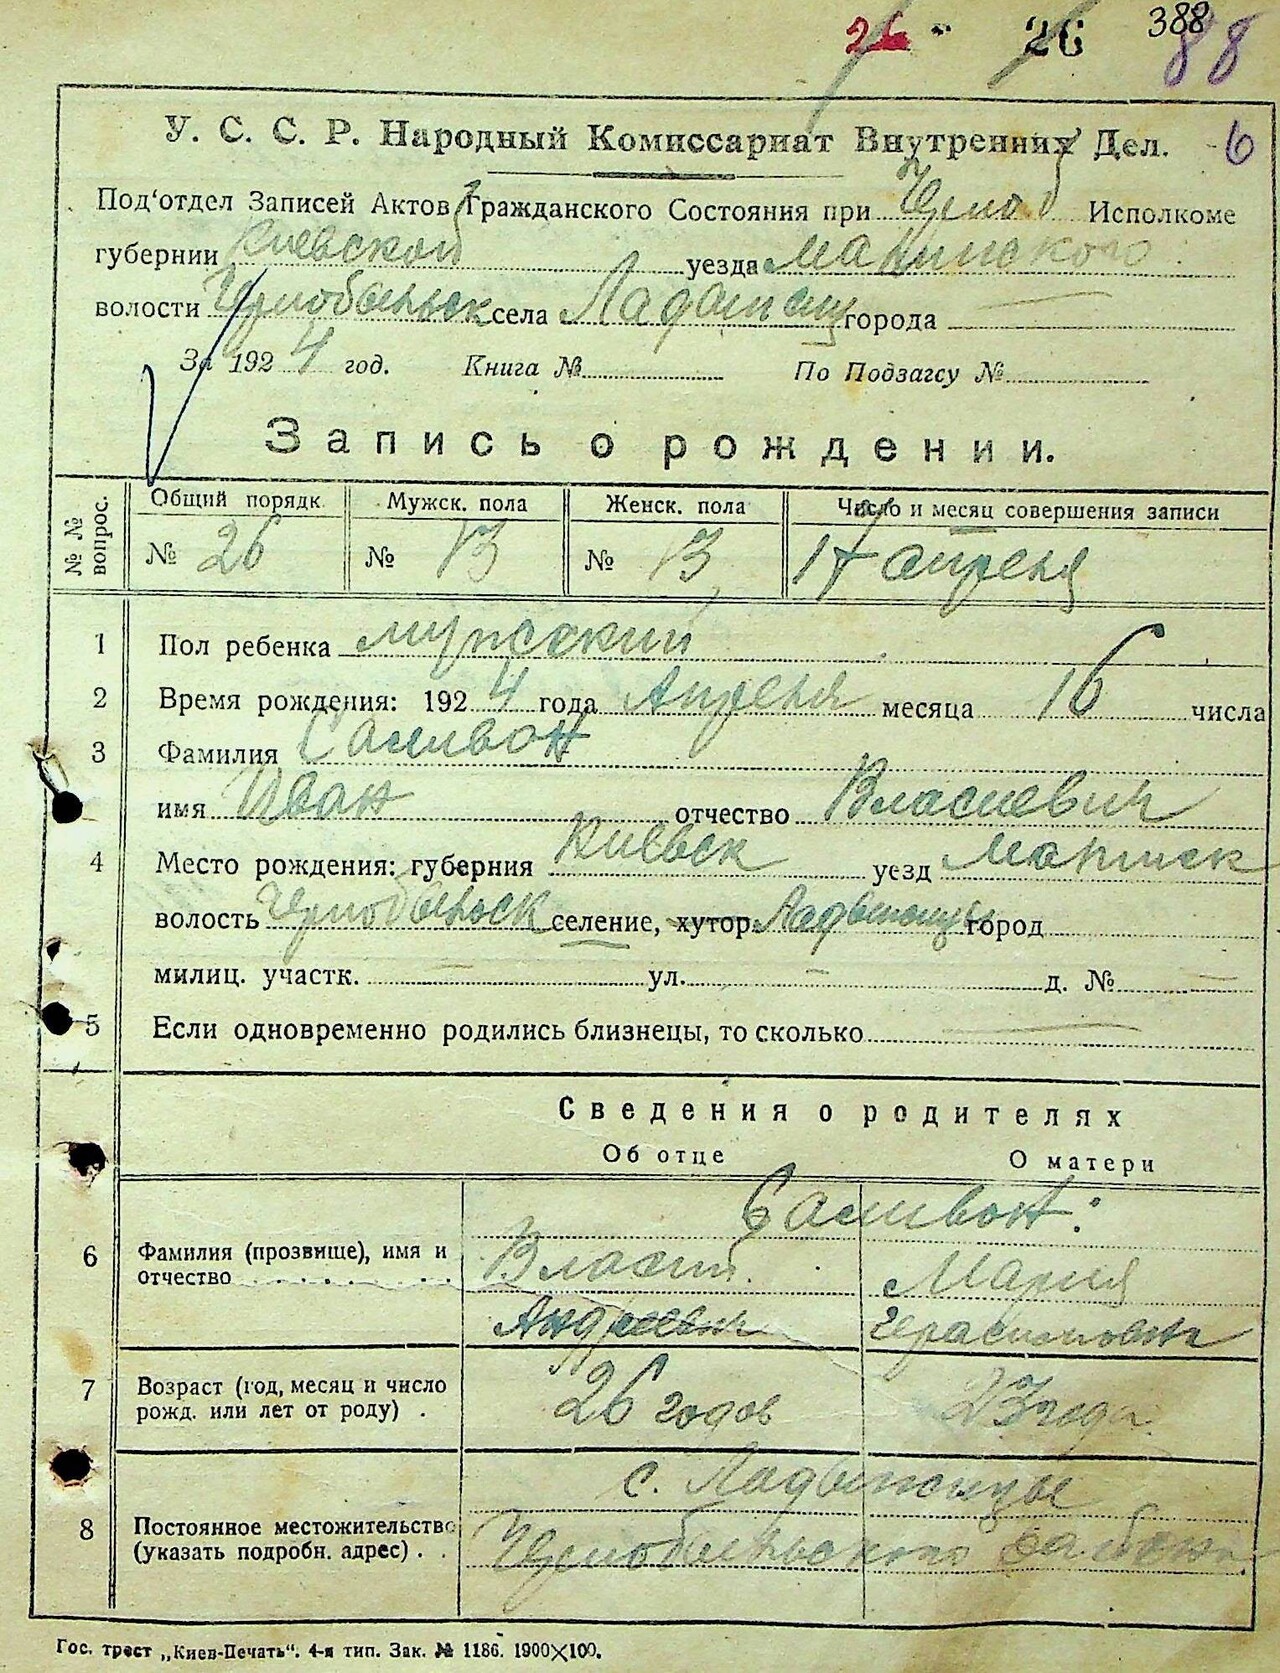 26 26 388
88
У. С. С. Р. Народный Комиссариат Внутренних Дел. 6
Под'отдел Записей Актов Гражданского Состояния при Исполкоме
губернии Киевской уезда
волости села города
За 1924 год. Книга № По Подзагсу №
Запись о рождении.
№ № вопрос. Общий порядк. Мужск. пола Женск. пола Число и месяц совершения записи
№ 26 № 13 № 13 17 апреля
1 Пол ребенка мужский
2 Время рождения: 1924 года Апреля месяца 16 числа
3 Фамилия Саливон
имя Иван отчество Власиевич
4 Место рождения: губерния Киевск уезд
волость Чернобыльск селение, хутор город
милиц. участк. — ул. — д. № —
5 Если одновременно родились близнецы, то сколько —
Сведения о родителях
Об отце О матери
Саливон:
6 Фамилия (прозвище), имя и отчество Власий Мария
Андреевич Герасимовна
7 Возраст (год, месяц и число рожд. или лет от роду) . 26 годов 23 года
с.
8 Постоянное местожительство (указать подробн. адрес) . . Чернобыльского
Гос. трест „Киев-Печать“. 4-я тип. Зак. № 1186. 1900×100.